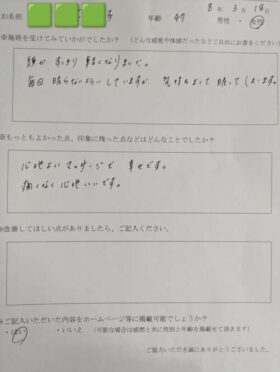 お名前
年齢 47
8年 3月 18日
男性・女性
※施術を受けてみていかがでしたか? (どんな感覚や体感だったなどご自由にお書きください)
頭が すっきり 軽くなりました。
毎回 眠らないようにしていますが、 気持ちよくて 眠ってしまいます。
※もっともよかった点、印象に残った点などはどんなことでしたか?
心地よい マッサージで 幸せです。
痛くなく 心地いいです。
※改善してほしい点がありましたら、ご記入ください。
※ご記入いただいた内容をホームページ等に掲載可能でしょうか?
・はい ・いいえ (可能な場合は感想と共に性別と年齢を掲載せて頂きます)
ご協力いただき誠にありがとうございました。